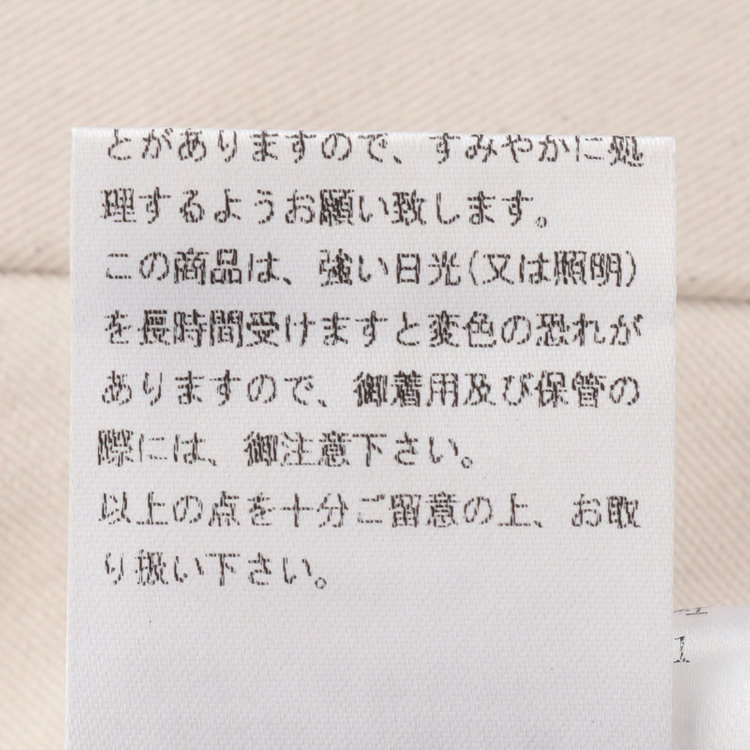 とがありますので、すみやかに処
理するようお願い致します。
この商品は、強い日光(又は照明)
を長時間受けますと変色の恐れが
ありますので、御着用及び保管の
際には、御注意下さい。
以上の点を十分ご留意の上、お取
り扱い下さい。
1